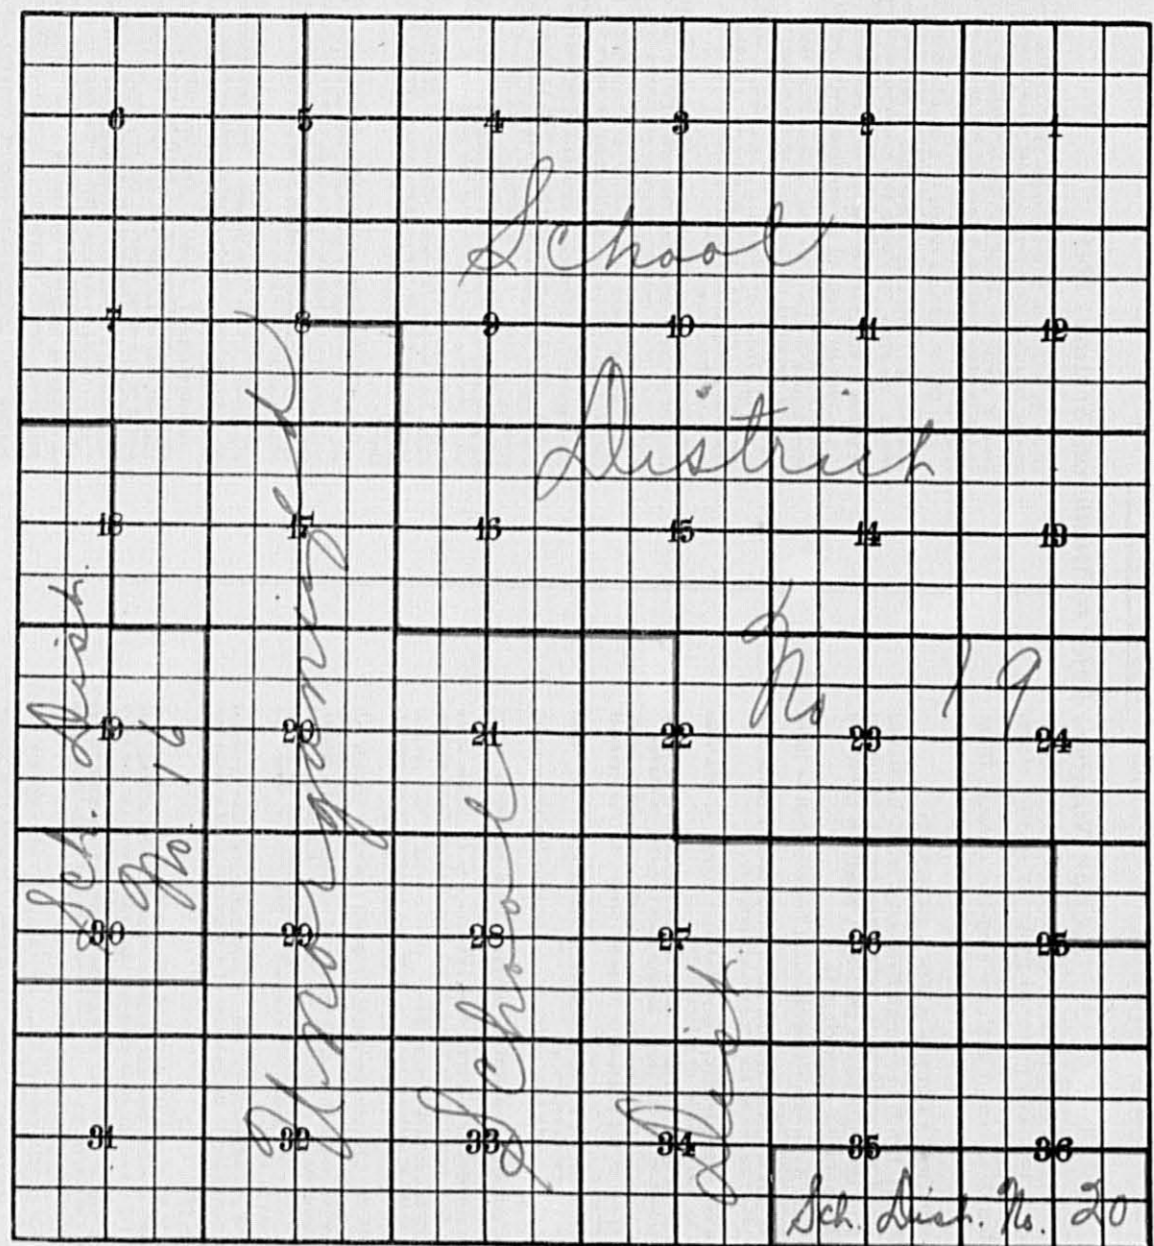 6 5 4 3 2 1
School
7 8 9 10 11 12
District
18 17 16 15 14 13
No 19
19 20 21 22 23 24
Sch. Dist.
No. 16
30 29 28 27 26 25
Unorganized
School
Dist.
31 32 33 34 35 36
Sch. Dist. No. 20